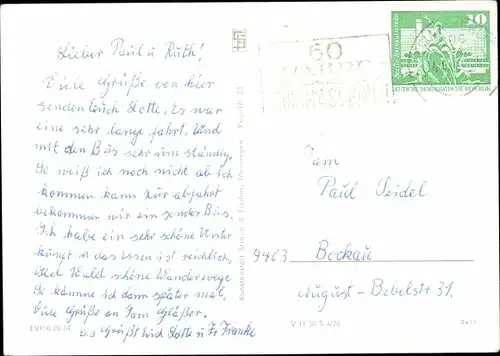 Lieber Paul u Ruth!
Viele Grüße von hier
senden Euch Lotte. Es war
eine sehr lange fahrt. Und
mit den Bus sehr um ständig.
So weiß ich noch nicht ob ich
kommen kann zur abfahrt
bekommen wir ein sonder Bus.
Ich habe ein sehr schöne Unter
kunft u das Essen ist reichlich,
Viel Wald schöne Wanderwege
So könnne ich dann später mal.
Viele Grüße an Fam Gläßer.
es Grüßt Euch Lotte u Fr Franke
EVP 0,20 M
Kunstanstalt Straub & Fischer, Meiningen Reg.-Nr. 23
60
JAHRE
10
DEUTSCHE DEMOKRATISCHE REPUBLIK
Fam
Paul Seidel
9463 Bockau
August-Bebelstr 31.
V 11 50 S 4/76